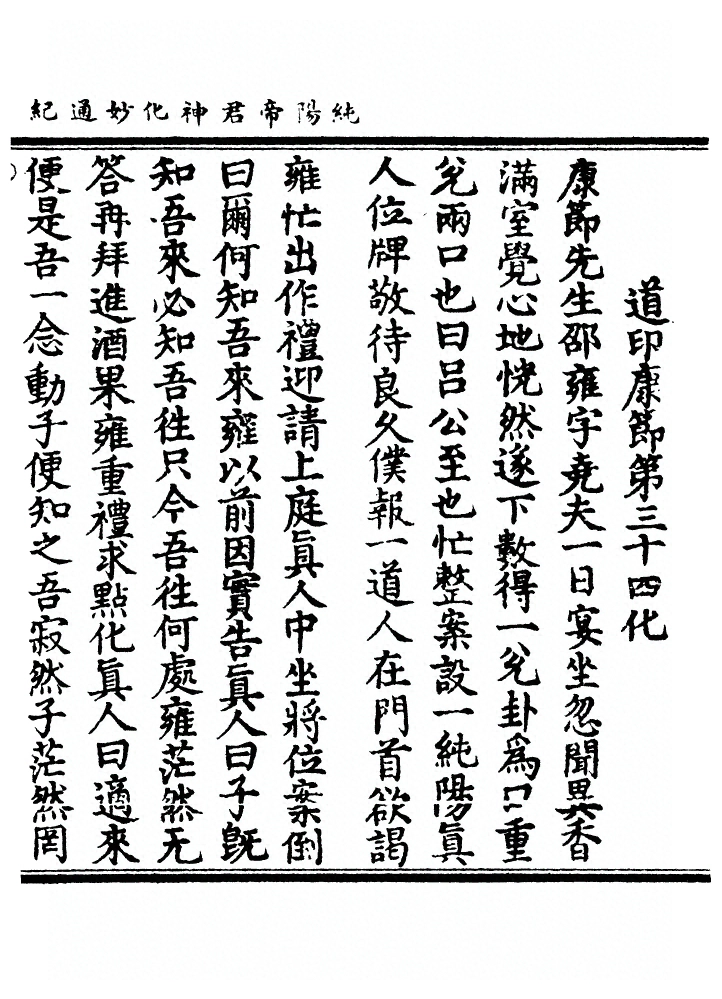 純陽帝君神化妙通紀
道印康節第三十四化
康節先生邵雍字堯夫一日宴坐忽聞異香
滿室覺心地恍然遂下數得一兌卦爲口重
兌兩口也曰吕公至也忙整案設一純陽眞
人位牌敬待良久僕報一道人在門首欲謁
雍忙出作禮迎請上庭眞人中坐將位案倒
曰爾何知吾來雍以前因實告眞人曰子旣
知吾來必知吾往只今吾往何處雍茫然无
答再拜進酒果雍重禮求點化眞人曰適來
便是吾一念動子便知之吾寂然子茫然罔